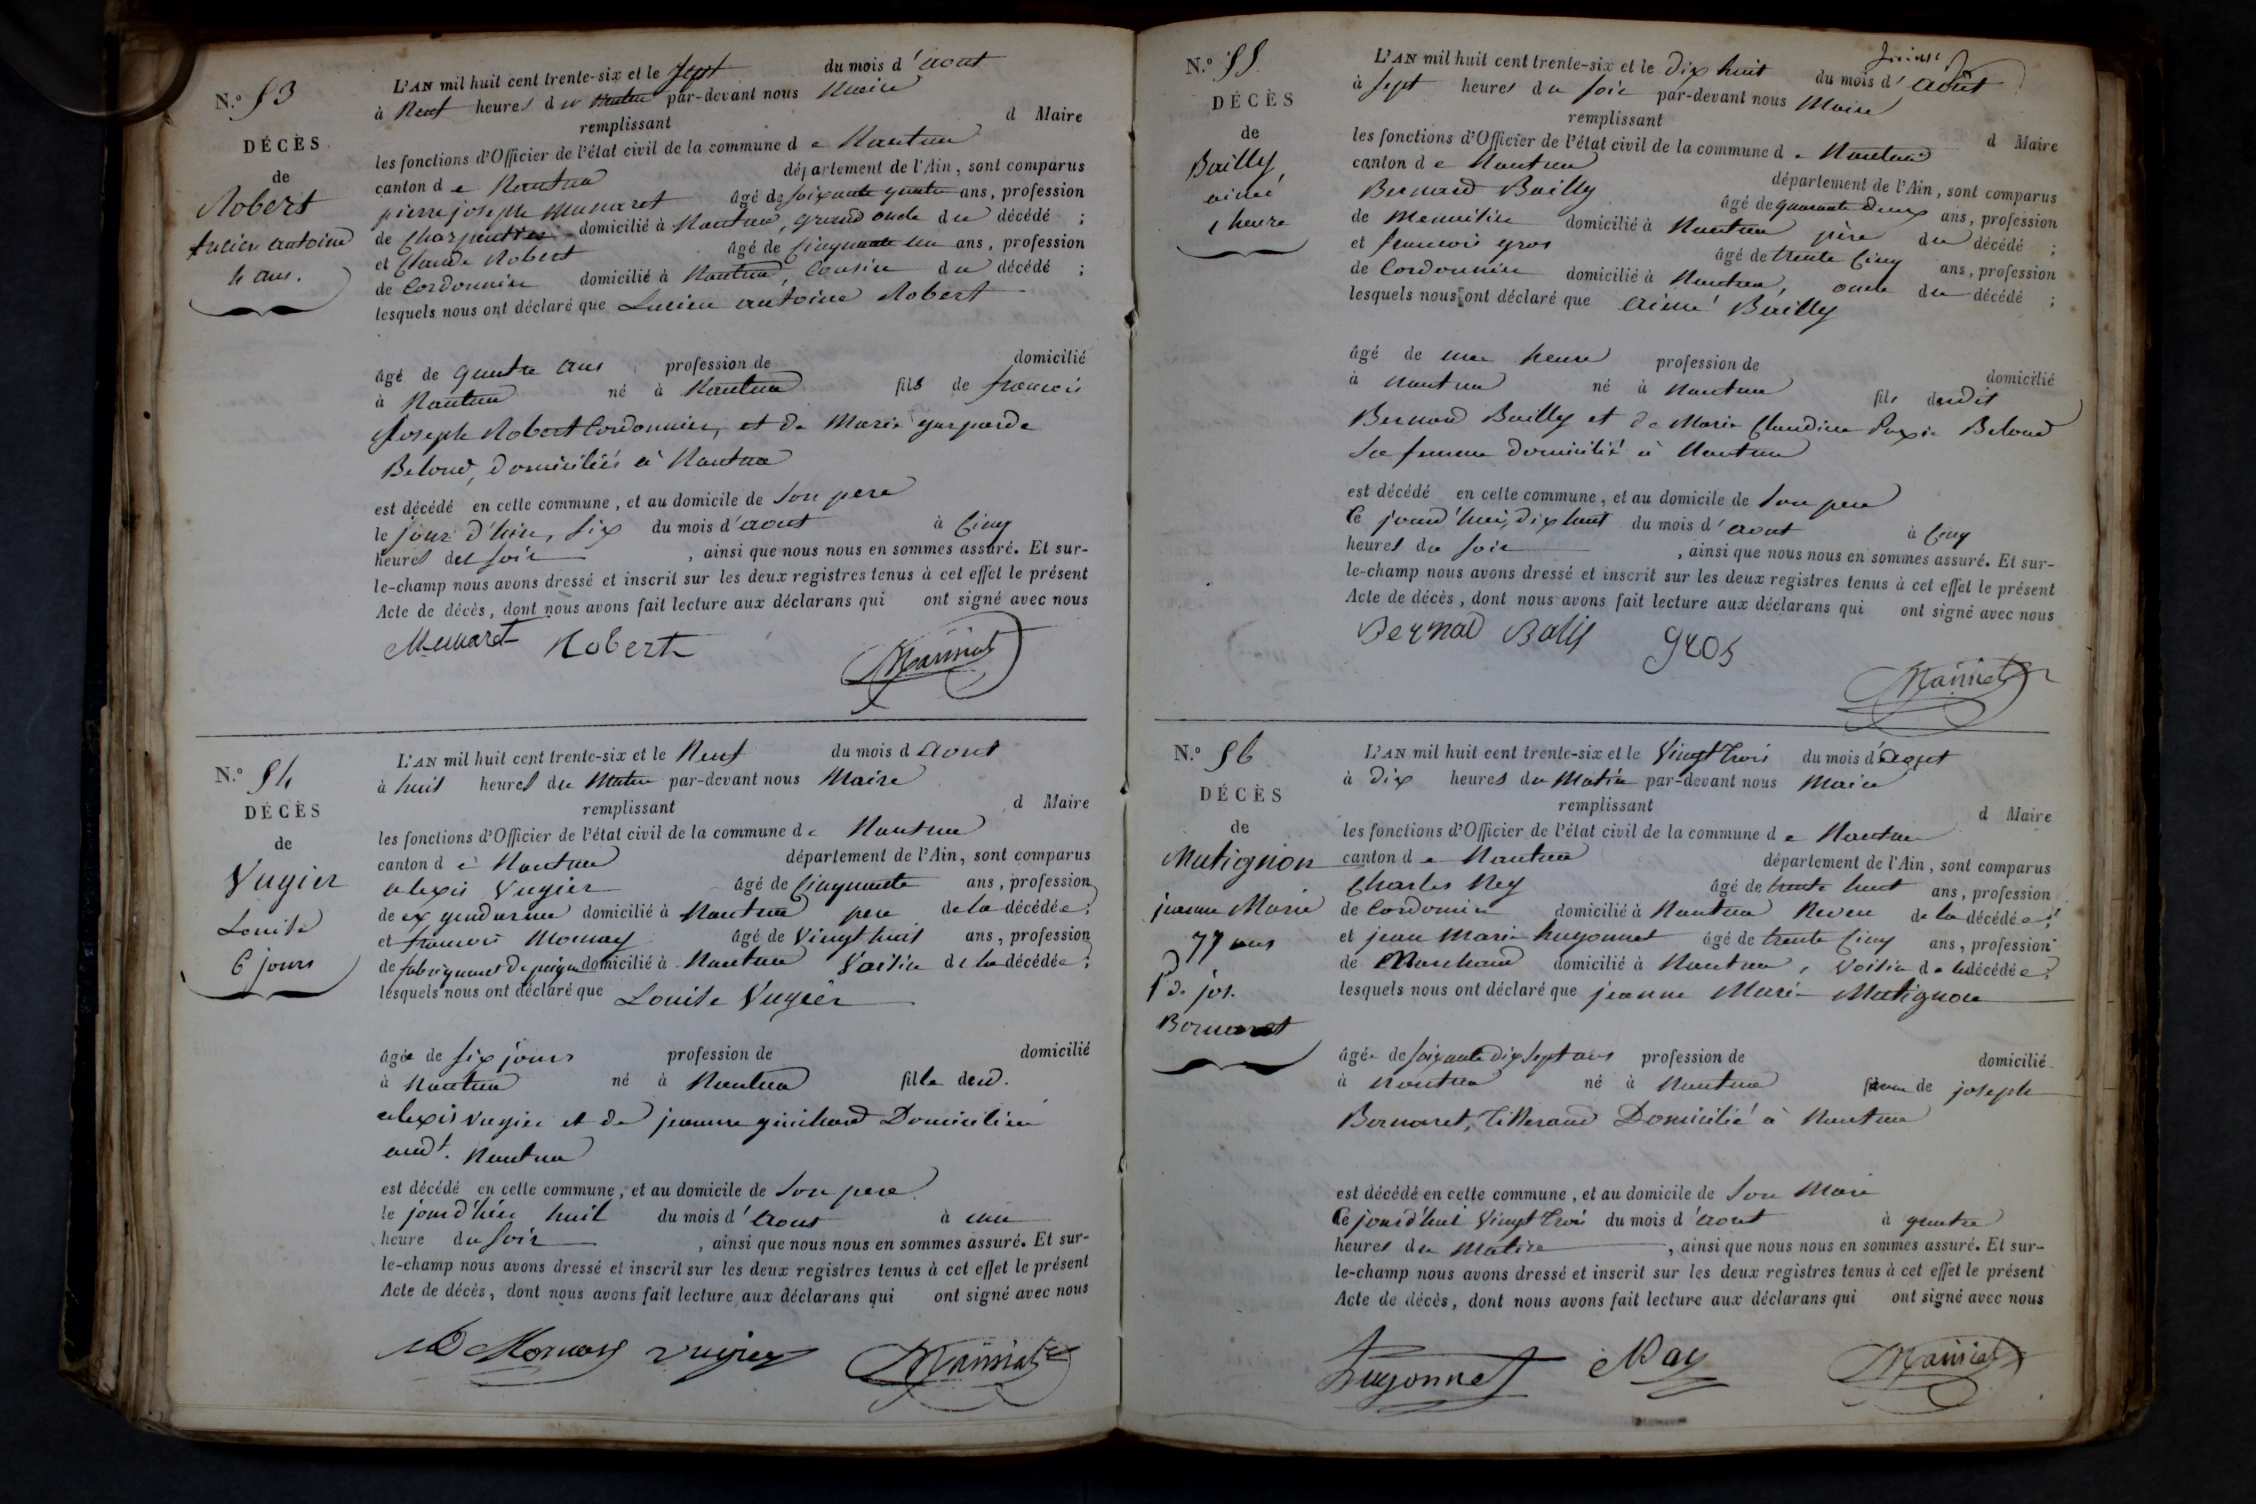 N.° 53
DÉCÈS
de
Robert
Lucien antoine
4 ans.
L'AN mil huit cent trente-six et le sept du mois d'aout
à Neuf heures du matin par-devant nous Maire
remplissant d Maire
les fonctions d'Officier de l'état civil de la commune de Nantua
canton de Nantua département de l'Ain, sont comparus
pierre joseph Munaret âgé de soixante quatre ans, profession
de Charpentier domicilié à Nantua, grand oncle du décédé ;
et Claude Robert âgé de Cinquante un ans, profession
de Cordonnier domicilié à Nantua, Cousin du décédé ;
lesquels nous ont déclaré que Lucien antoine Robert
âgé de quatre ans profession de domicilié
à Nantua né à Nantua fils de françois
Joseph Robert Cordonnier, et de Marie gasparde
Beloud, domiciliés à Nantua
est décédé en cette commune, et au domicile de son pere
le jour d'hier, six du mois d'aout à Cinq
heures du soir , ainsi que nous nous en sommes assuré. Et sur-
le-champ nous avons dressé et inscrit sur les deux registres tenus à cet effet le présent
Acte de décès, dont nous avons fait lecture aux déclarans qui ont signé avec nous
Munaret Robert
N.° 54
DÉCÈS
de
Vugier
Louise
6 jours
L'AN mil huit cent trente-six et le Neuf du mois d aout
à huit heures du Matin par-devant nous Maire
remplissant d Maire
les fonctions d'Officier de l'état civil de la commune de Nantua
canton de Nantua département de l'Ain, sont comparus
alexis Vugier âgé de Cinquante ans, profession
de ex gendarme domicilié à Nantua pere de la décédée ;
et françois Mornay âgé de Vingt huit ans, profession
de fabriquant de peignes domicilié à Nantua Voisin de la décédée ;
lesquels nous ont déclaré que Louise Vugier
âgée de six jours profession de domicilié
à Nantua né à Nantua fille dud.
alexis Vugier et de jeanne guichard Domiciliés
aud.t Nantua
est décédé en cette commune, et au domicile de son pere
le jourd'hier huit du mois d'aout à une
heure du soir , ainsi que nous nous en sommes assuré. Et sur-
le-champ nous avons dressé et inscrit sur les deux registres tenus à cet effet le présent
Acte de décès, dont nous avons fait lecture aux déclarans qui ont signé avec nous
Mornay Vugier
N.° 55
DÉCÈS
de
Bailly,
aimé
1 heure
L'AN mil huit cent trente-six et le Dix huit du mois d'août
à sept heures du soir par-devant nous Maire
remplissant d Maire
les fonctions d'Officier de l'état civil de la commune de Nantua
canton de Nantua département de l'Ain, sont comparus
Bernard Bailly âgé de quarante deux ans, profession
de Menuisier domicilié à Nantua père du décédé ;
et françois gros âgé de trente Cinq ans, profession
de Cordonnier domicilié à Nantua, oncle du décédé ;
lesquels nous ont déclaré que aimé Bailly
âgé de une heure profession de domicilié
à Nantua né à Nantua fils dudit
Bernard Bailly et de Marie Claudine Beloud
sa femme domicilié à Nantua
est décédé en cette commune, et au domicile de son pere
Ce jourd'hui, dix huit du mois d'aout à Cinq
heures du soir , ainsi que nous nous en sommes assuré. Et sur-
le-champ nous avons dressé et inscrit sur les deux registres tenus à cet effet le présent
Acte de décès, dont nous avons fait lecture aux déclarans qui ont signé avec nous
Bernad Balli gros
N.° 56
DÉCÈS
de
Matignon
jeanne Marie
77 ans
f. de jos.
Bornaret
L'AN mil huit cent trente-six et le Vingt trois du mois d'août
à dix heures du Matin par-devant nous Maire
remplissant d Maire
les fonctions d'Officier de l'état civil de la commune de Nantua
canton de Nantua département de l'Ain, sont comparus
Charles Rey âgé de trente huit ans, profession
de Cordonnier domicilié à Nantua Neveu de la décédée ;
et jean Marie hugonnet âgé de trente Cinq ans, profession
de Marchand domicilié à Nantua, Voisin de la décédée ;
lesquels nous ont déclaré que jeanne Marie Matignon
âgée de soixante dix sept ans profession de domicilié
à Nantua né à Nantua femme de joseph
Bornaret, tisserand Domicilié à Nantua
est décédé en cette commune, et au domicile de son Mari
Ce jourd'hui Vingt trois du mois d'aout à quatre
heures du Matin , ainsi que nous nous en sommes assuré. Et sur-
le-champ nous avons dressé et inscrit sur les deux registres tenus à cet effet le présent
Acte de décès, dont nous avons fait lecture aux déclarans qui ont signé avec nous
hugonnet